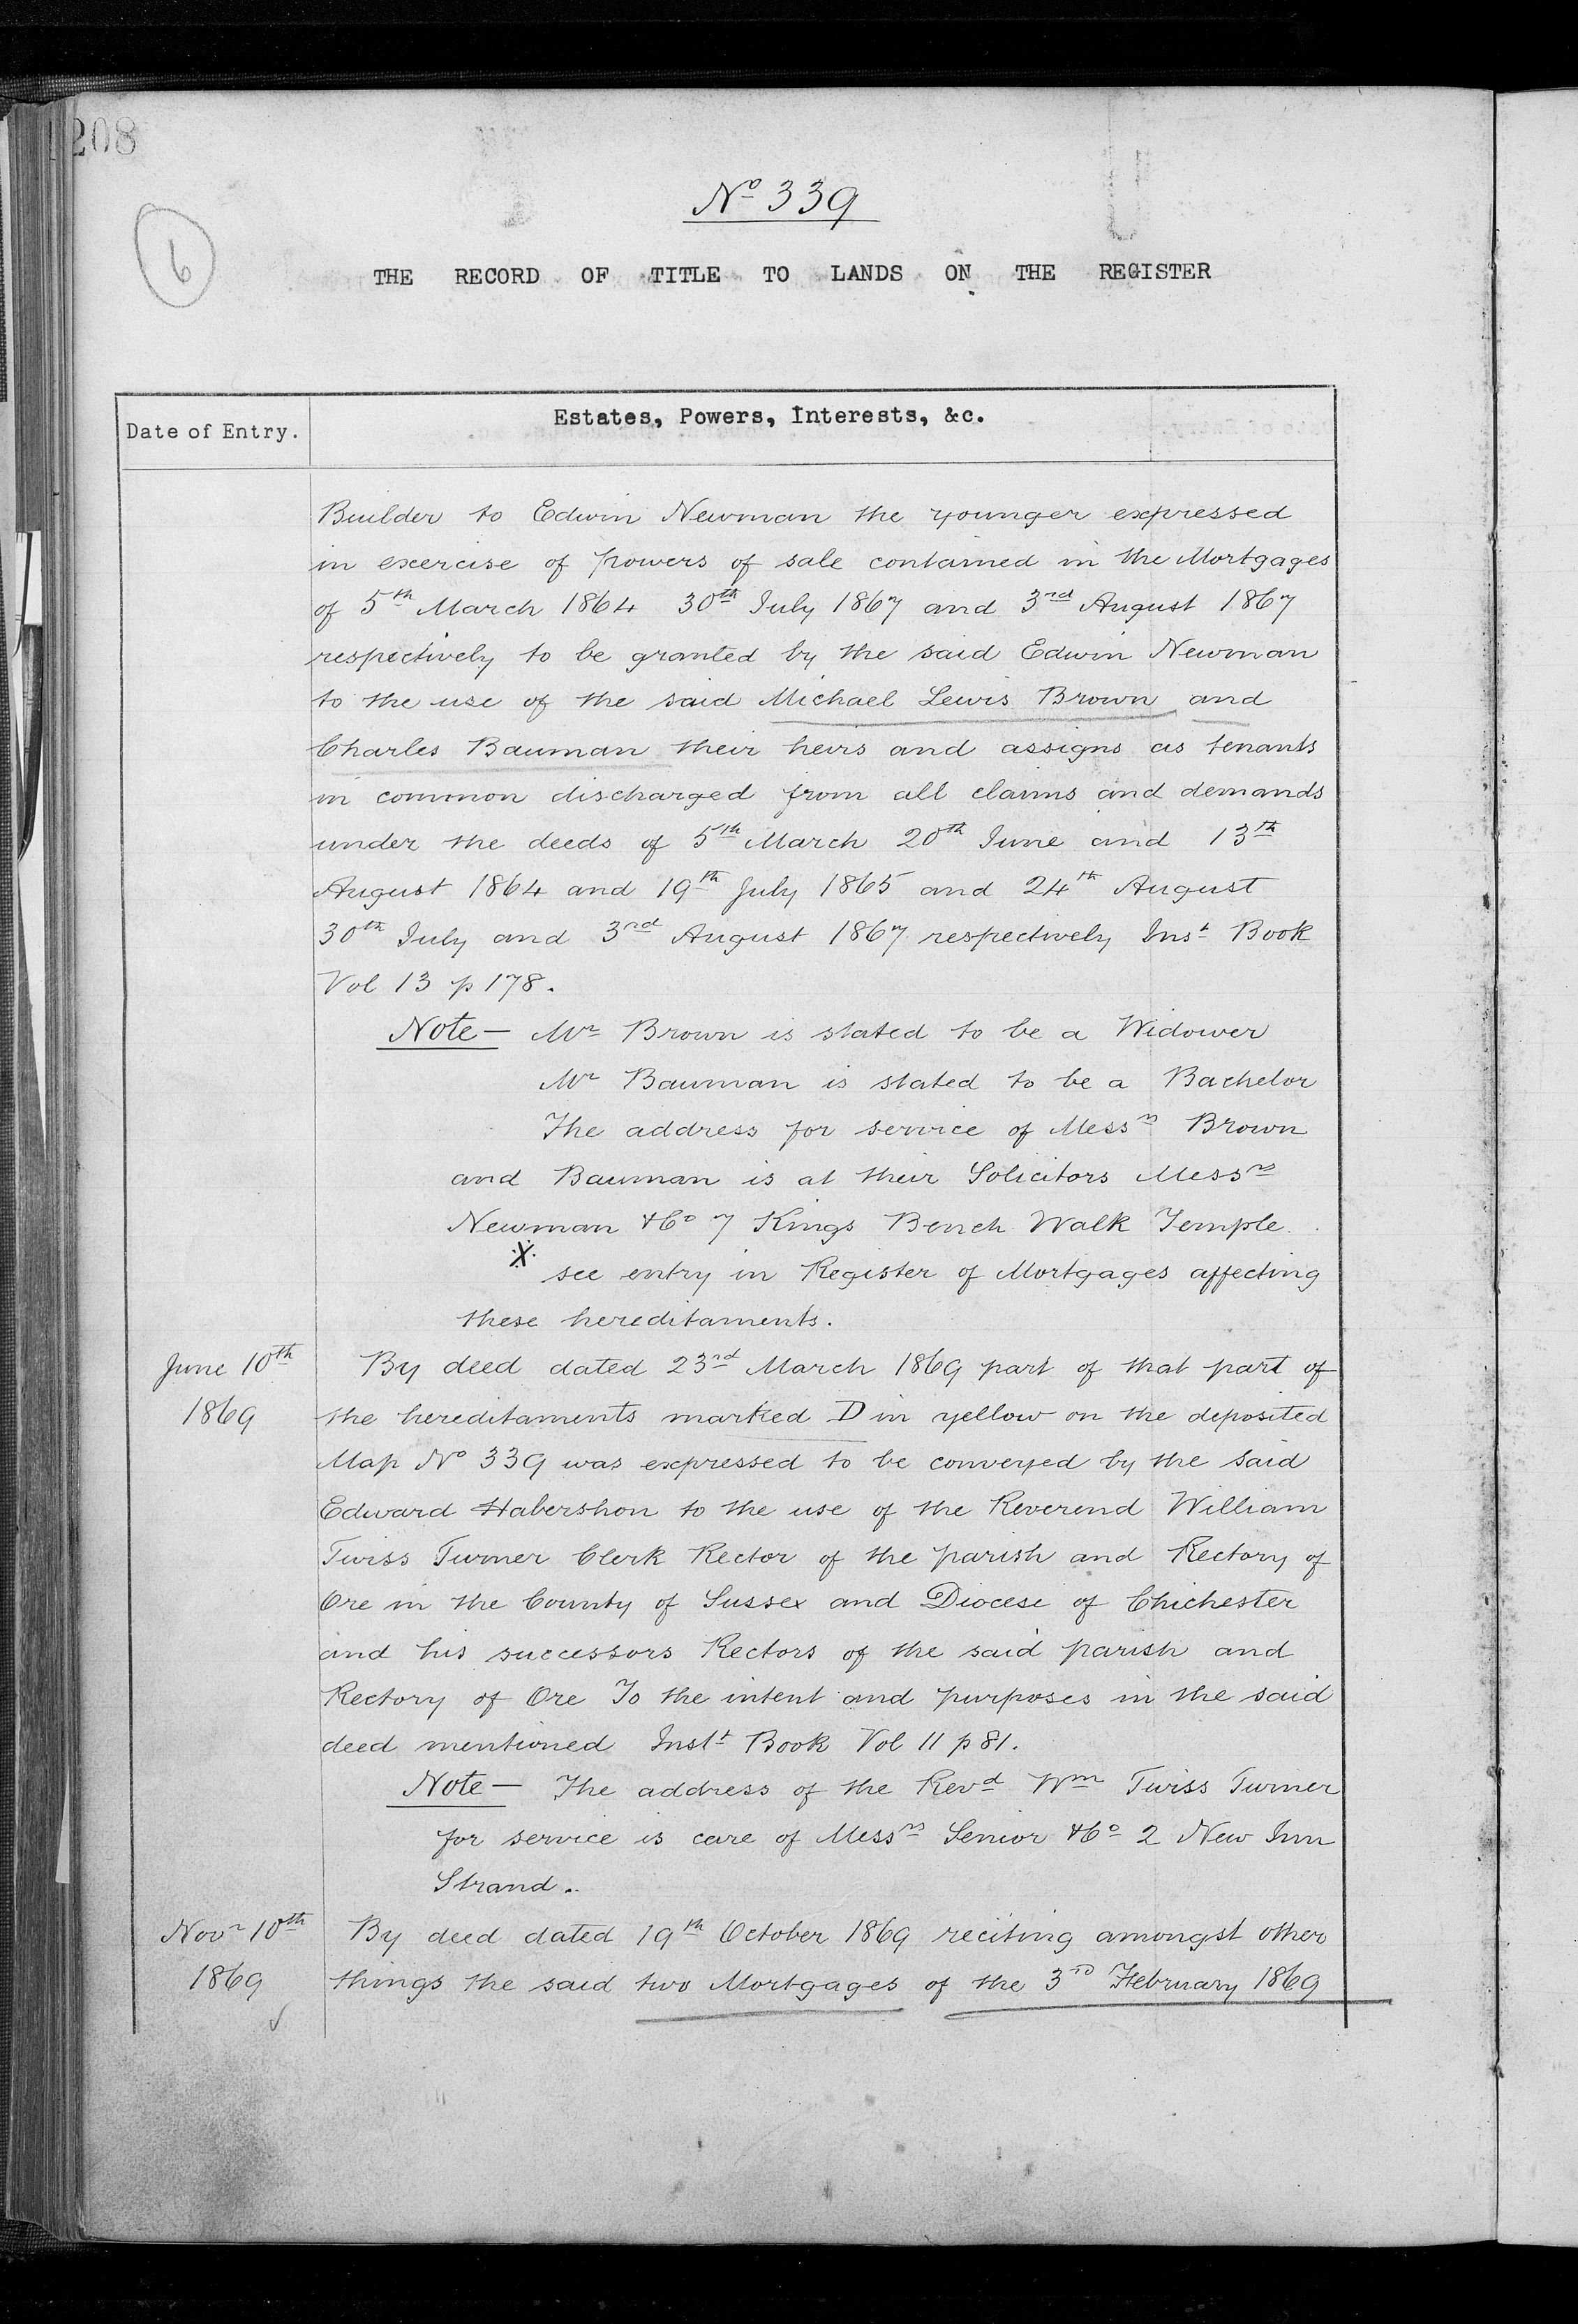 208
6
No 339
THE RECORD OF TITLE TO LANDS ON THE REGISTER
Date of Entry.
Estates, Powers, Interests, &c.
Builder to Edwin Newman the younger expressed
in exercise of powers of sale contained in the Mortgages
of 5th March 1864 30th July 1867 and 3rd August 1867
respectively to be granted by the said Edwin Newman
to the use of the said Michael Lewis Brown and
Charles Bauman their heirs and assigns as tenants
in common discharged from all claims and demands
under the deeds of 5th March 20th June and 13th
August 1864 and 19th July 1865 and 24th August
30th July and 3rd August 1867 respectively Inst Book
Vol 13 p 178.
Note — Mr Brown is stated to be a Widower
Mr Bauman is stated to be a Bachelor
The address for service of Messrs Brown
and Bauman is at their Solicitors Messrs
Newman & Co 7 Kings Bench Walk Temple
X see entry in Register of Mortgages affecting
these hereditaments.
June 10th
1869
By deed dated 23rd March 1869 part of that part of
the hereditaments marked D in yellow on the deposited
Map No 339 was expressed to be conveyed by the said
Edward Habershon to the use of the Reverend William
Twiss Turner Clerk Rector of the parish and Rectory of
Ore in the County of Sussex and Diocese of Chichester
and his successors Rectors of the said parish and
Rectory of Ore To the intent and purposes in the said
deed mentioned Instt Book Vol 11 p 81.
Note — The address of the Revd Wm Twiss Turner
for service is care of Messrs Senior & Co 2 New Inn
Strand.
Novr 10th
1869
By deed dated 19th October 1869 reciting amongst other
things the said two Mortgages of the 3rd February 1869